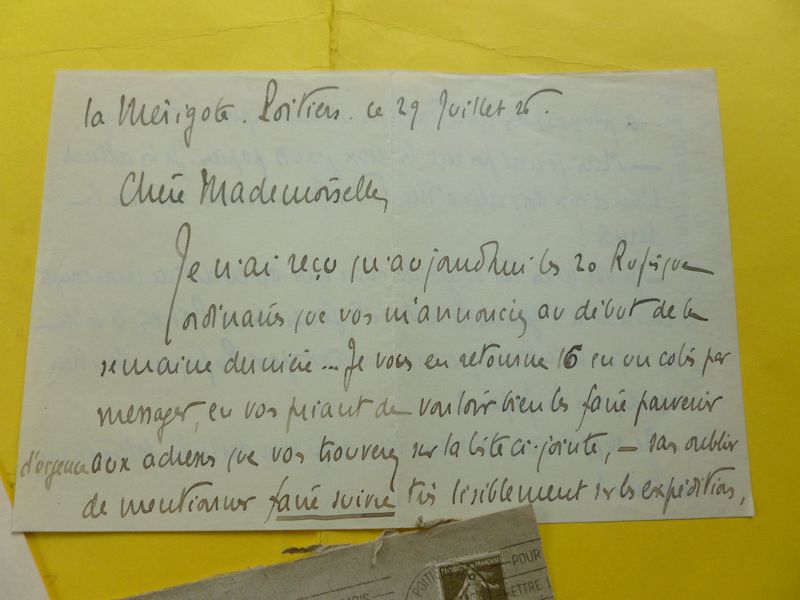 la Mérigote. Poitiers. ce 29 Juillet 26.
Chère Mademoiselle,
Je n'ai reçu qu'aujourd'hui les 20
ordinaires que vous m'annonciez au début de la
semaine dernière... Je vous en retourne 16 en un colis par
messager, en vous priant de vouloir bien les faire parvenir
d'urgence aux adresses que vous trouverez sur la liste ci-jointe, — sans oublier
de mentionner faire suivre très lisiblement sur les expéditions,
POITI
FRANÇAISE
POUR
METTRE
PARIS